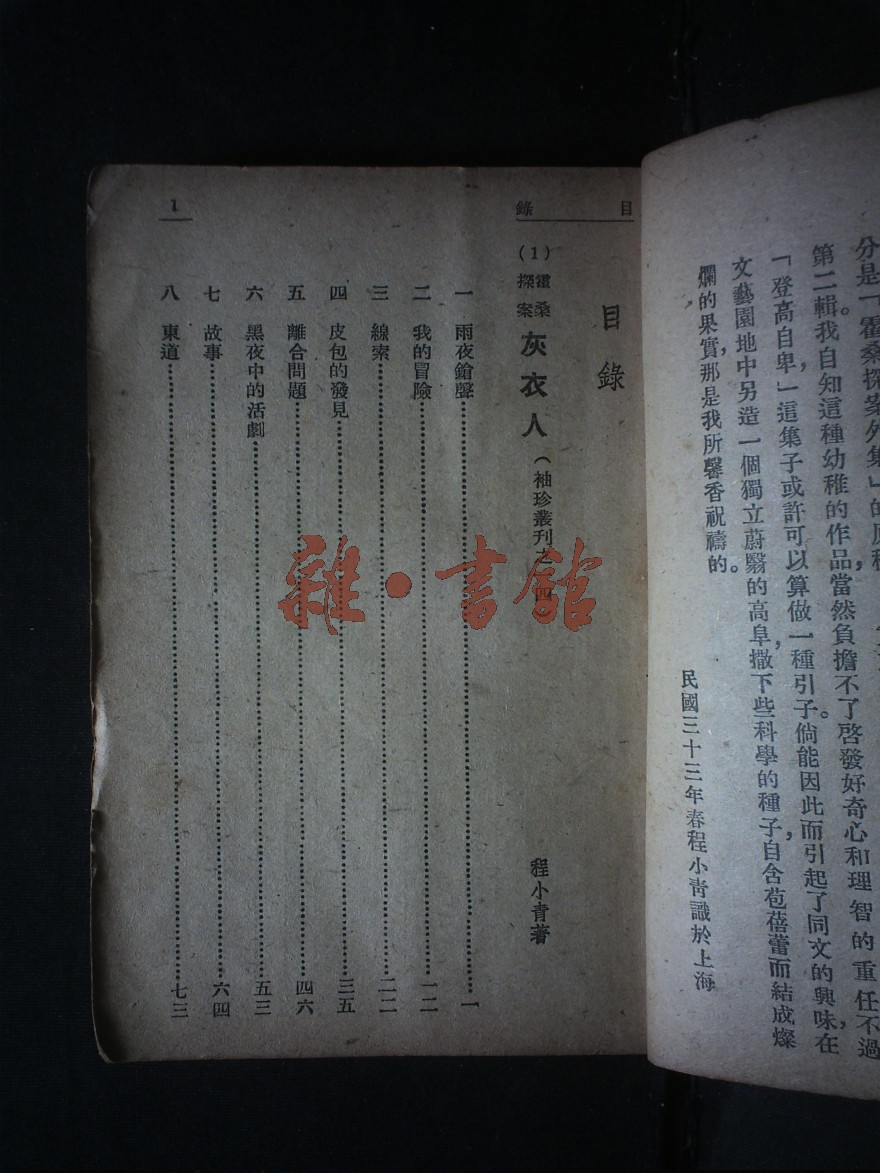 分是「霍桑探案外集」的
第二輯。我自知這種幼稚的作品，當然負擔不了啓發好奇心和理智的重任不過
「登高自卑」這集子或許可以算做一種引子。倘能因此而引起了同文的興味，在
文藝園地中另造一個獨立蔚翳的高阜，撒下些科學的種子，自含苞蓓蕾而結成燦
爛的果實，那是我所馨香祝禱的。
民國三十三年春程小靑識於上海
目錄
目錄
(1) 霍桑探案 灰衣人 (袖珍叢刊之 四 程小青著
一 雨夜鎗聲 一
二 我的冒險 一二
三 線索 二二
四 皮包的發見 三五
五 離合問題 四六
六 黑夜中的活劇 五三
七 故事 六四
八 東道 七三
1
雜·書館